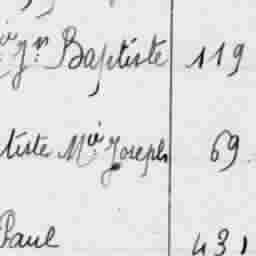 Jn Baptiste 119
tiste Mie Joseph 69
Paul 431